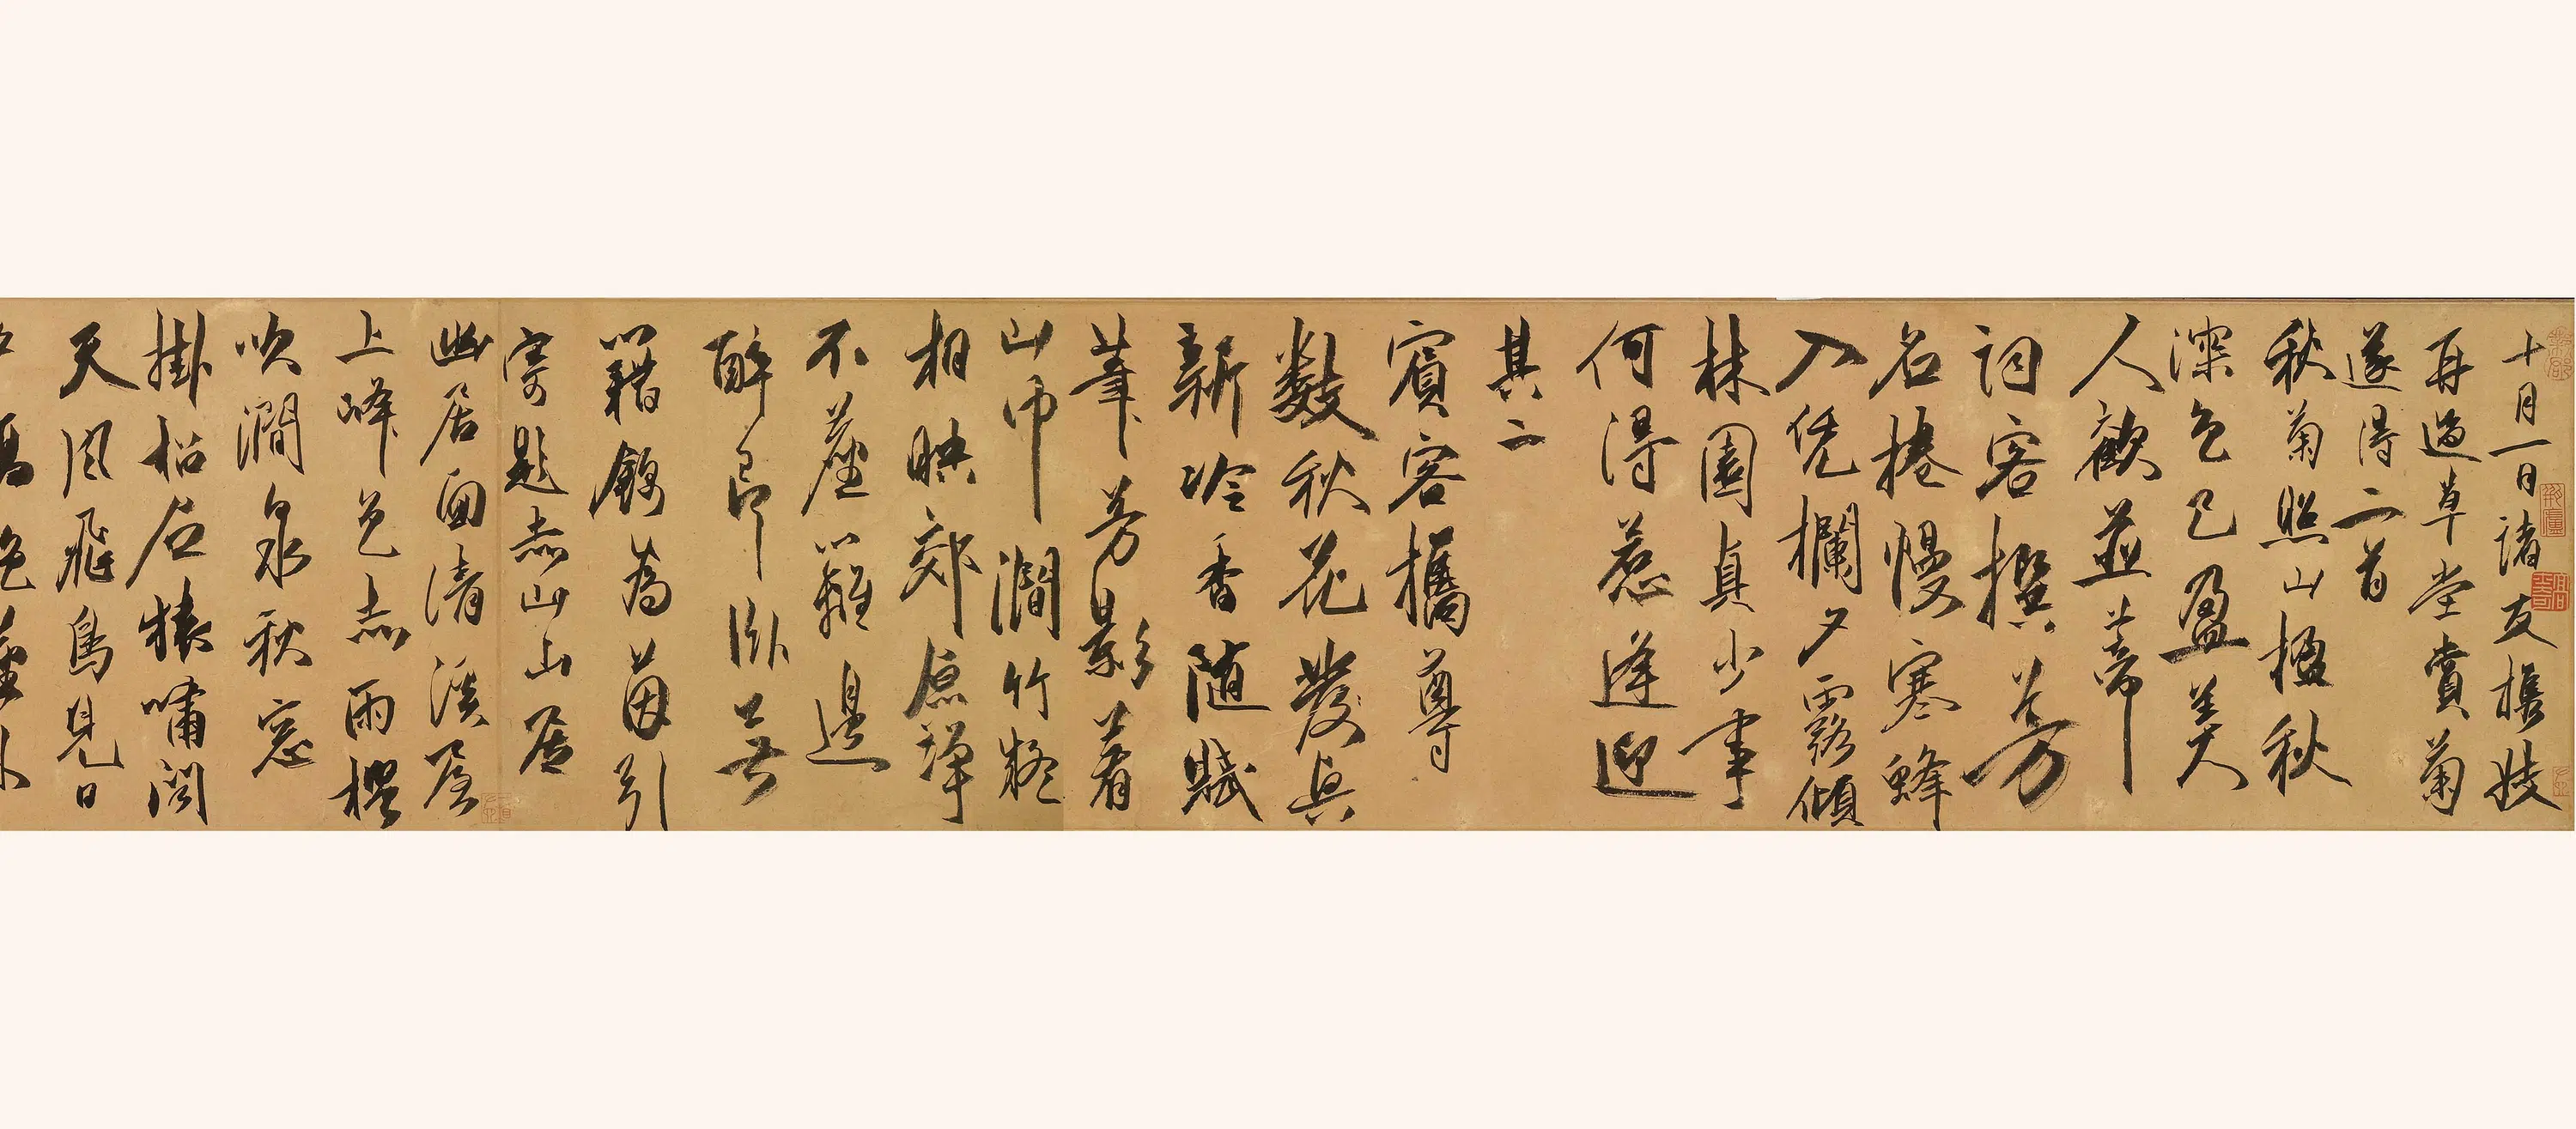 十月一日諸友携妓
再過草堂賞菊
遂得二首
秋菊照山楹秋
深色已盈美
人歡並蒂
詞客撰芳
名捲幔寒蜂
入凭欄夕露傾
林園真少事
何得惹逢迎
其二
賓客攜尊
數秋花發與
新冷香隨賦
筆芳影著
山巾澗竹
相映郊原
不座籬邊
醉即臥
籍錦為茵引
寄題赤山山居
幽居面清溪居
上峰色赤雨
吹澗泉秋窓
掛松石猿嘯閣
天風飛鳥見日